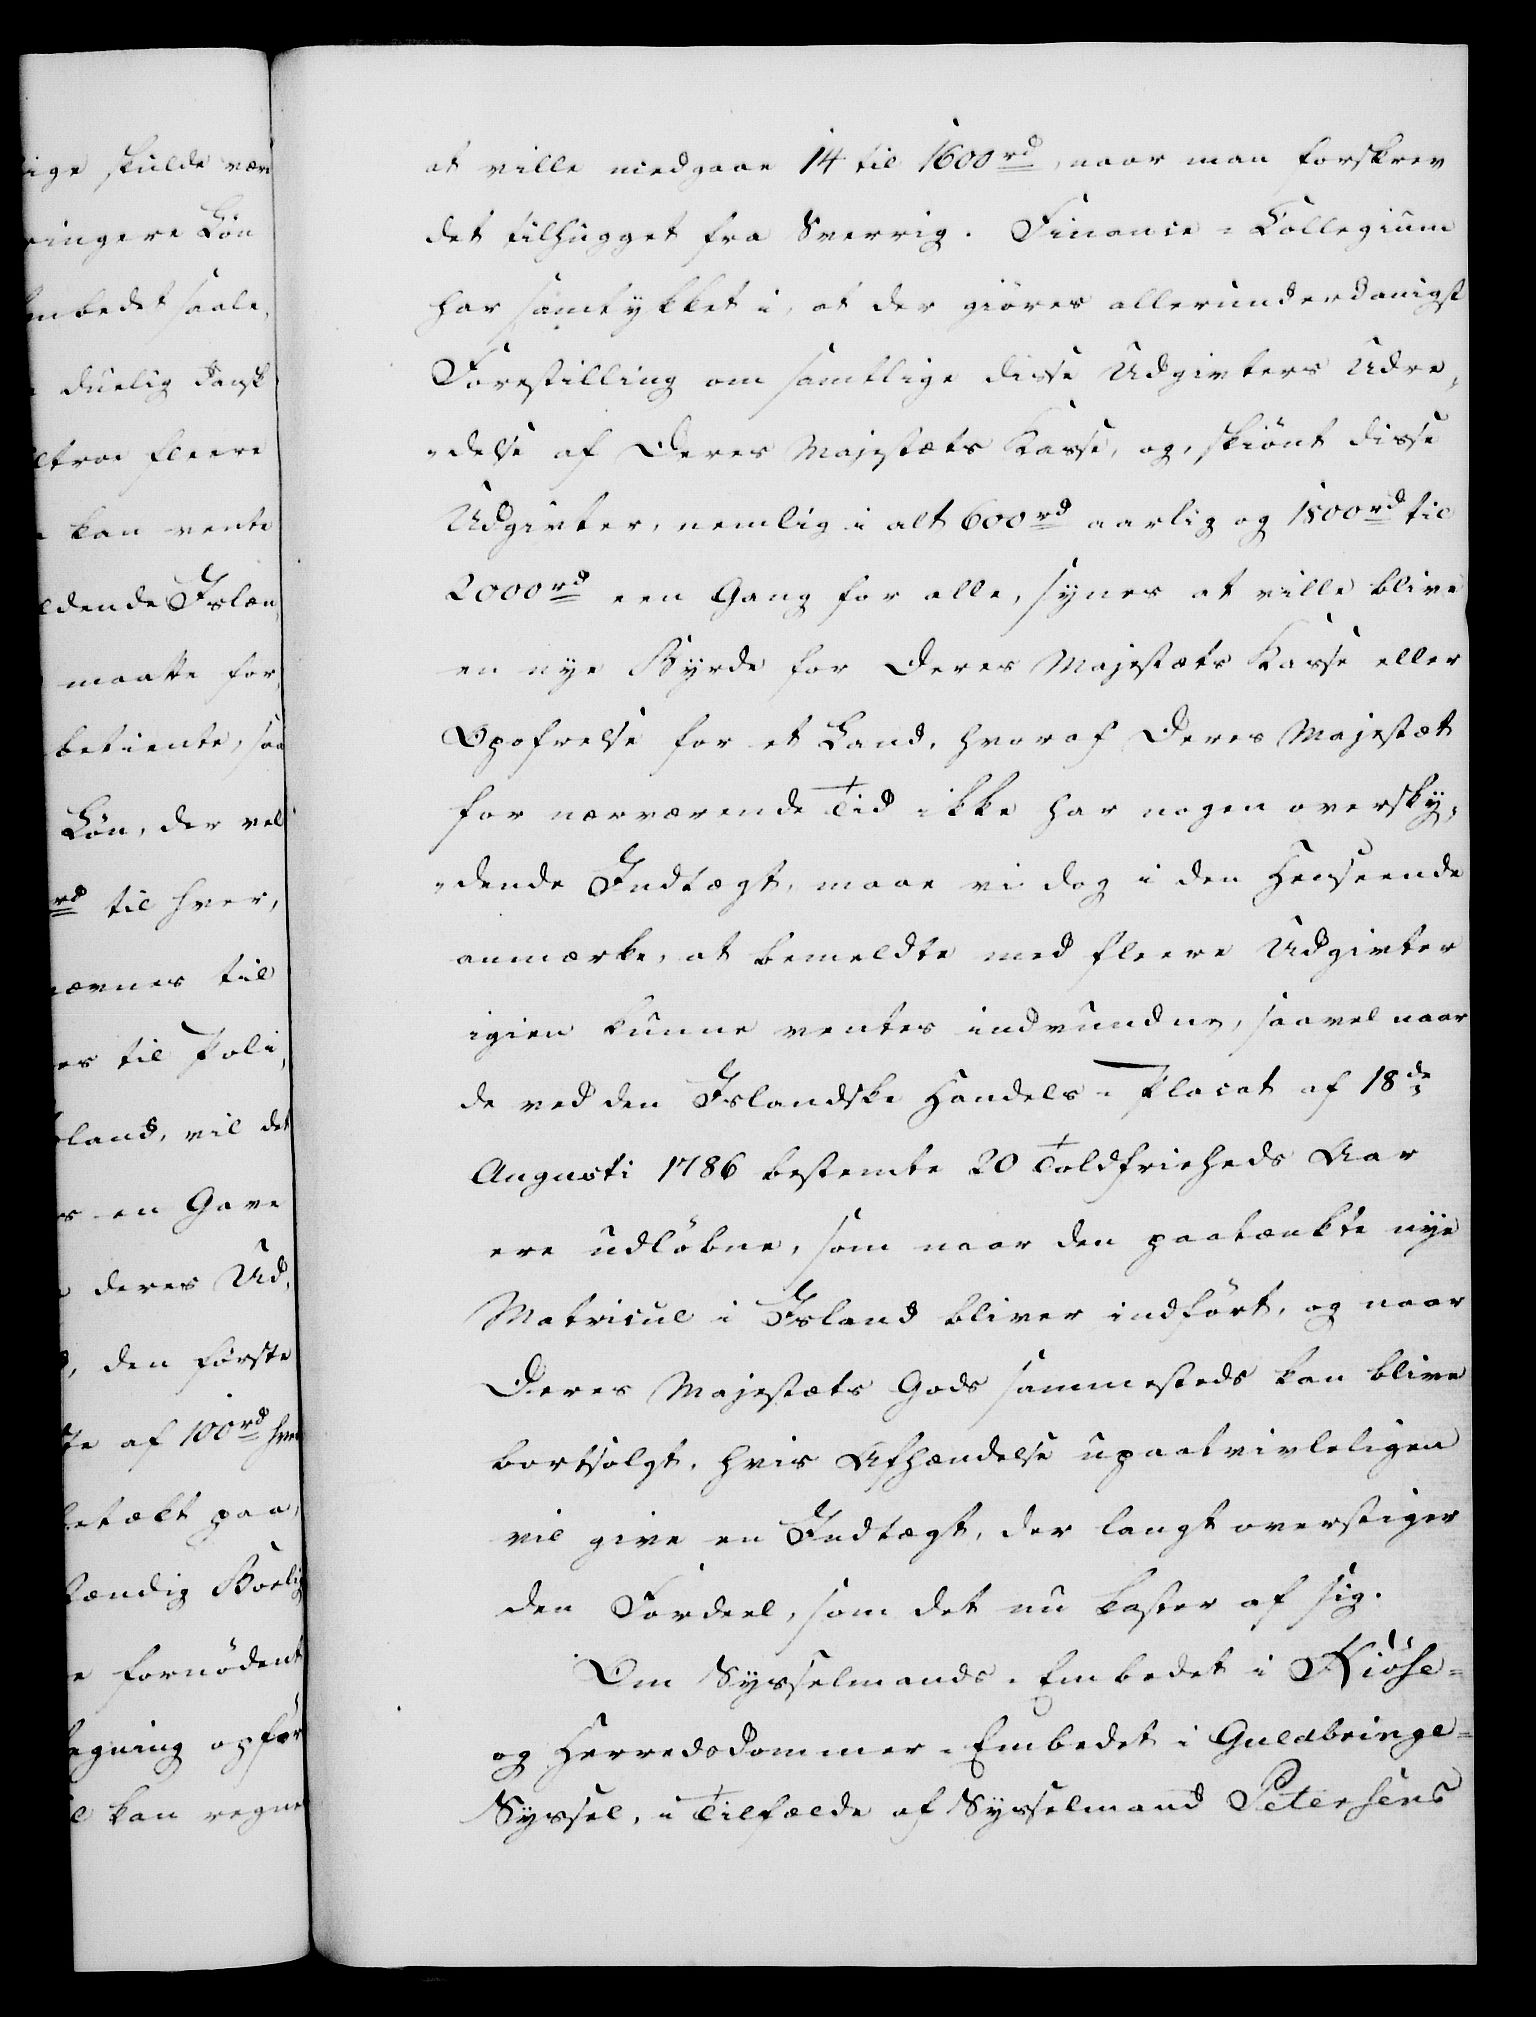 ige skulde være
ringere Løn
mbedet saale,
duelig dansk
fleere
kan vente
ldende Islæn,
maatte for,
betiente, saa
Løn, der vel
rd til hver,
nævnes til
es til Poli,
land, vil det
s en Gave
deres Ud,
den første
te af 100 rd hver
betækt paa,
stændig Boelig
e fornødent
egning opfør
l kan regne
at ville medgaae 14 til 1600 rd, naar man forskrev
det tilhugget fra Sverrig. Finance-Collegium
har samtykket i, at der giöres allerunderdanigst
Forestilling om samtlige disse Udgivters Udre,
„delse af Deres Majestæts Kasse, og, skiönt disse
Udgivter, nemlig i alt 600 rd aarlig og 1800 rd til
2000 rd een Gang for alle, synes at ville blive
en nye Byrde for Deres Majestæts Kasse eller
Opofrelse for et Land, hvoraf Deres Majestæt
for nærværende Tid ikke har nogen oversky,
„dende Indtægt, maae vi dog i den Henseende
anmærke, at bemeldte med fleere Udgivter
igien kunne ventes indvundne, saavel naar
de ved den Islandske Handels-Placat af 18de
Augusti 1786 bestemte 20 Toldfrieheds Aar
ere udløbne, som naar den paatænkte nye
Matricul i Island bliver indført, og naar
Deres Majestæts Gods sammesteds kan blive
bortsolgt, hvis Afhændelse upaatvivleligen
vil give en Indtægt, der langt overstiger
den Fordeel, som det nu kaster af sig.
Om Sysselmands-Embedet i Kiöse-
og Herredsdommer-Embedet i Guldbringe-
Syssel, i Tilfælde af Sysselmand Petersens